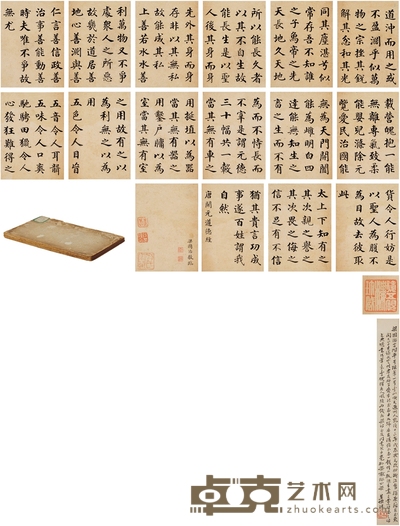 道沖而用之或
不盈淵乎似萬
物之宗挫其銳
解其忿和其光
同其塵湛兮似
常存吾不知誰
之子象帝之先
天長地久天地
所以能長久者
以其不自生故
能長生是以聖
人後其身而身
先外其身而身
存非以其無私
故能成其私
上善若水水善
利萬物又不爭
處眾人之所惡
故幾於道居善
地心善淵與善
仁言善信政善
治事善能動善
時夫唯不爭故
無尤
載營魄抱一能
無離專氣致柔
能嬰兒滌除玄
覽愛民治國能
無為天門開闔
能為雌明白四
達能無知生之
畜之生而不有
為而不恃長而
不宰是謂元德
三十輻共一轂
當其無有車之
用埏埴以為器
當其無有器之
用鑿戶牖以為
室當其無有室
之用故有之以
為利無之以為
用
五色令人目盲
五音令人耳聾
五味令人口爽
馳騁田獵令人
心發狂難得之
貨令人行妨是
以聖人為腹不
為目故去彼取
此
太上下知有之
其次親之譽之
其次畏之侮之
信不足有不信
猶其貴言功成
事遂百姓謂我
自然
唐開元道德經
卓克艺术网
www.zhuokearts.com